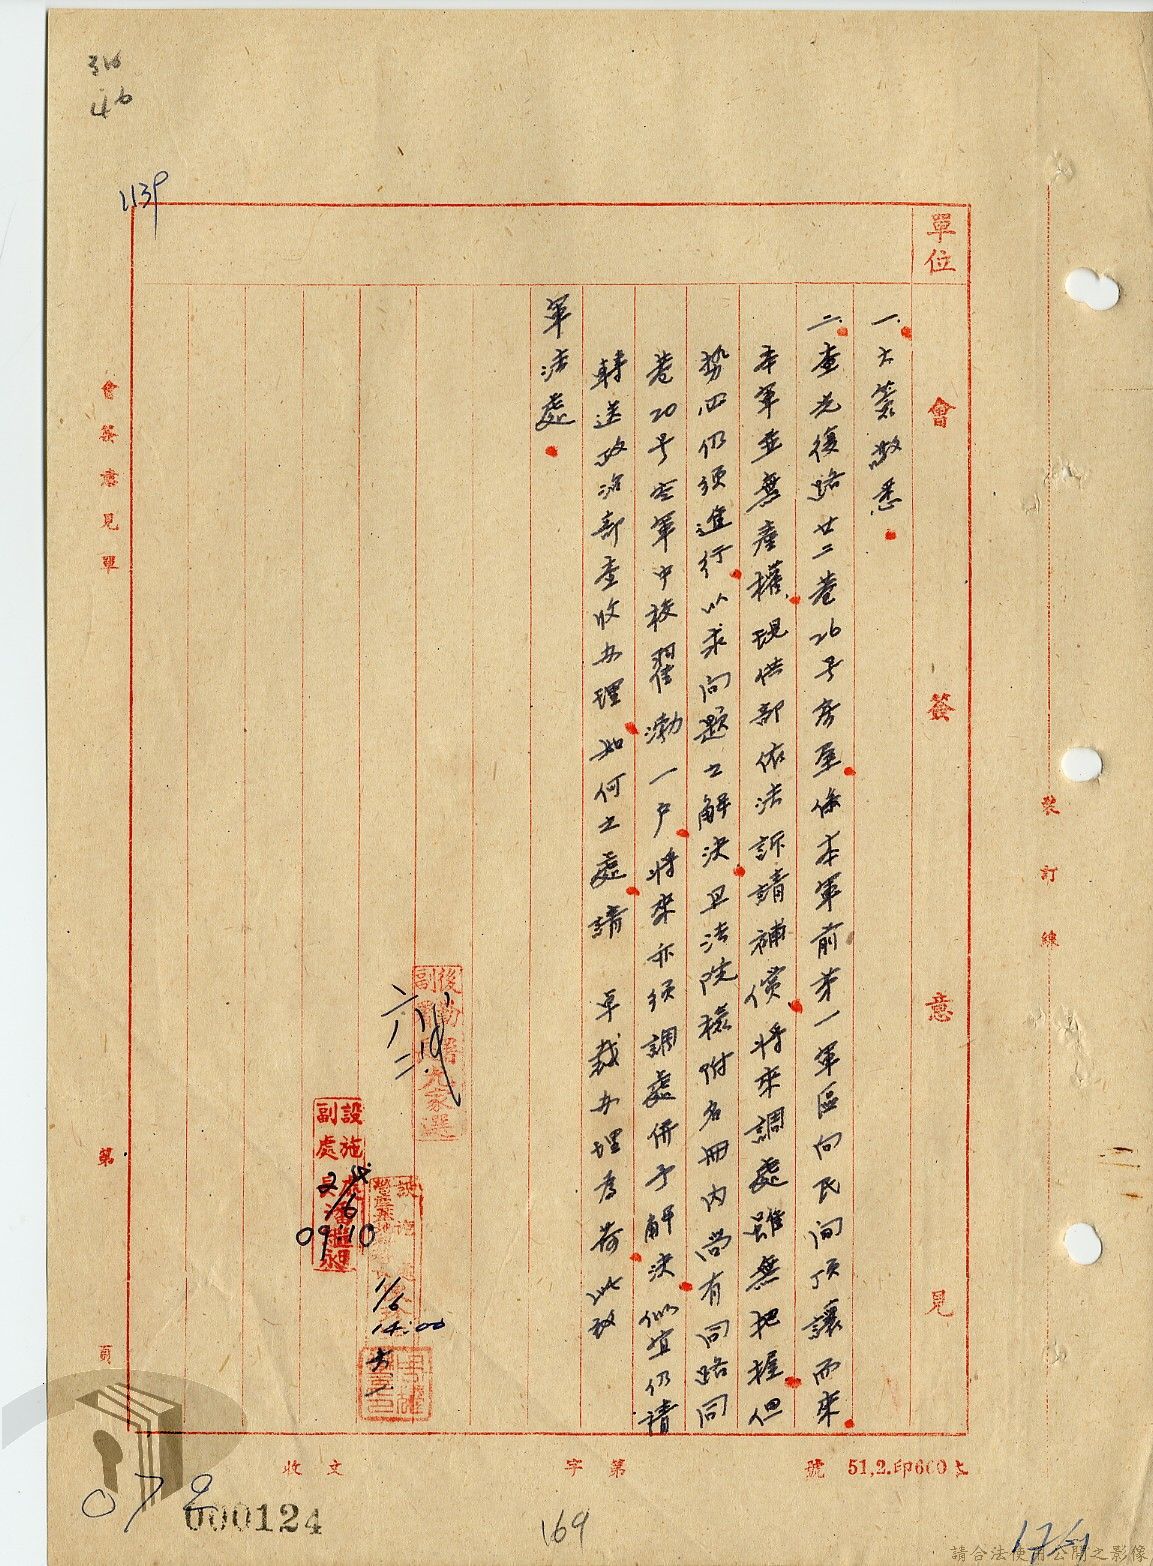 316
46
1139
單位
會簽意見
一、大簽敬悉。
二、查光復路廿二巷26号房屋,係本軍前第一軍區向民間頂讓而來,
本軍並無產權,現供部依法訴請補償,將來調處雖無把握,但
勢必仍須進行,以求問題之解決,且法院檢附名冊內尚有同路同
巷20号空軍中校翟渤一户,將來亦須調處併予解決,似宜仍請
轉送政治部查收办理,如何之處,請 卓裁办理為荷此致
軍法處。
後勤署
副
六二
設施處
副處
2/6
09:10
1/6
14:00
會簽意見單
第
頁
裝
訂
線
收文
字第
號
51,2.印660上
072
000124
169
請合法使用公開之影像